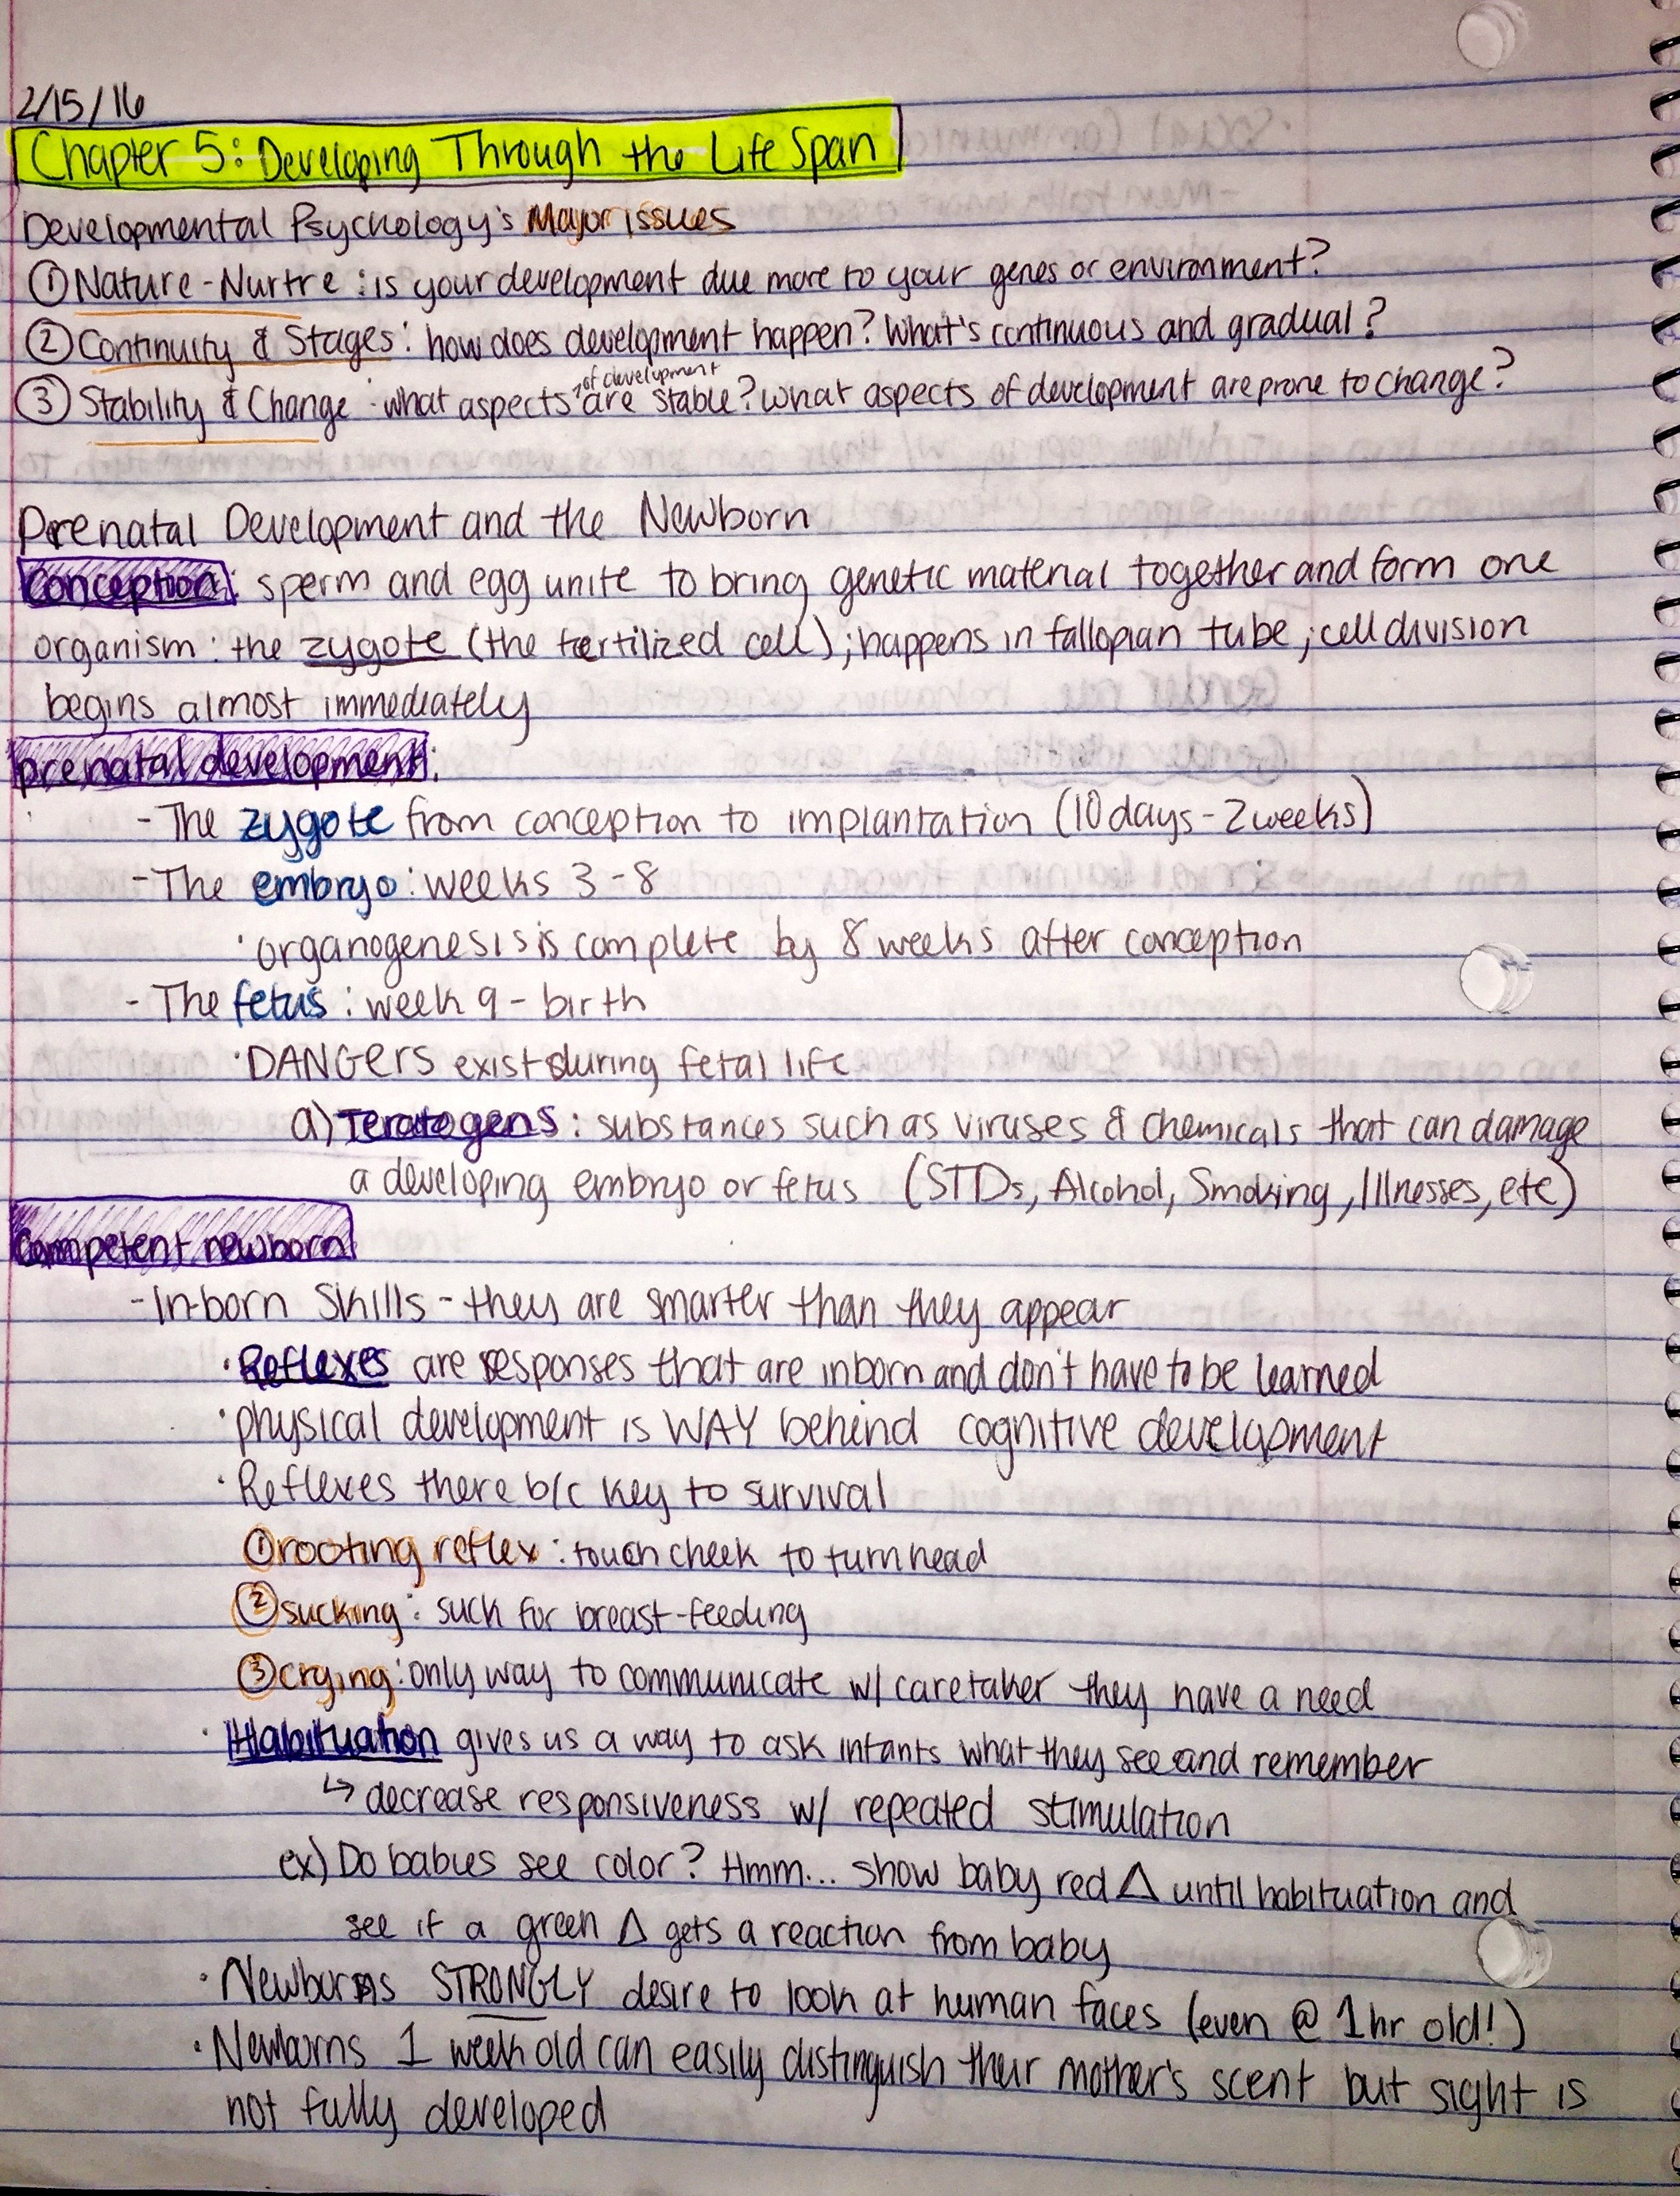 2/15/16
Chapter 5: Developing Through the Life Span
Developmental Psychology's Major Issues
① Nature-Nurtre: is your development due more to your genes or environment?
② Continuity & Stages: how does development happen? What's continuous and gradual?
of development
③ Stability & Change: what aspects are stable? What aspects of development are prone to change?
Prenatal Development and the Newborn
Conception: sperm and egg unite to bring genetic material together and form one
organism: the zygote (the fertilized cell); happens in fallopian tube; cell division
begins almost immediately
prenatal development:
- The zygote from conception to implantation (10 days - 2 weeks)
- The embryo: weeks 3-8
· organogenesis is complete by 8 weeks after conception
- The fetus: week 9 - birth
· DANGERS exist during fetal life
a) Teratogens: substances such as viruses & chemicals that can damage
a developing embryo or fetus (STDs, Alcohol, Smoking, Illnesses, etc)
Competent newborn
- In-born skills - they are smarter than they appear
· Reflexes are responses that are inborn and don't have to be learned
· physical development is WAY behind cognitive development
· Reflexes there b/c key to survival
① rooting reflex: touch cheek to turn head
② sucking: suck for breast-feeding
③ crying: only way to communicate w/ caretaker they have a need
· Habituation gives us a way to ask infants what they see and remember
↳ decrease responsiveness w/ repeated stimulation
ex) Do babies see color? Hmm... show baby red △ until habituation and
see if a green △ gets a reaction from baby
· Newborns STRONGLY desire to look at human faces (even @ 1hr old!)
· Newborns 1 week old can easily distinguish their mother's scent but sight is
not fully developed